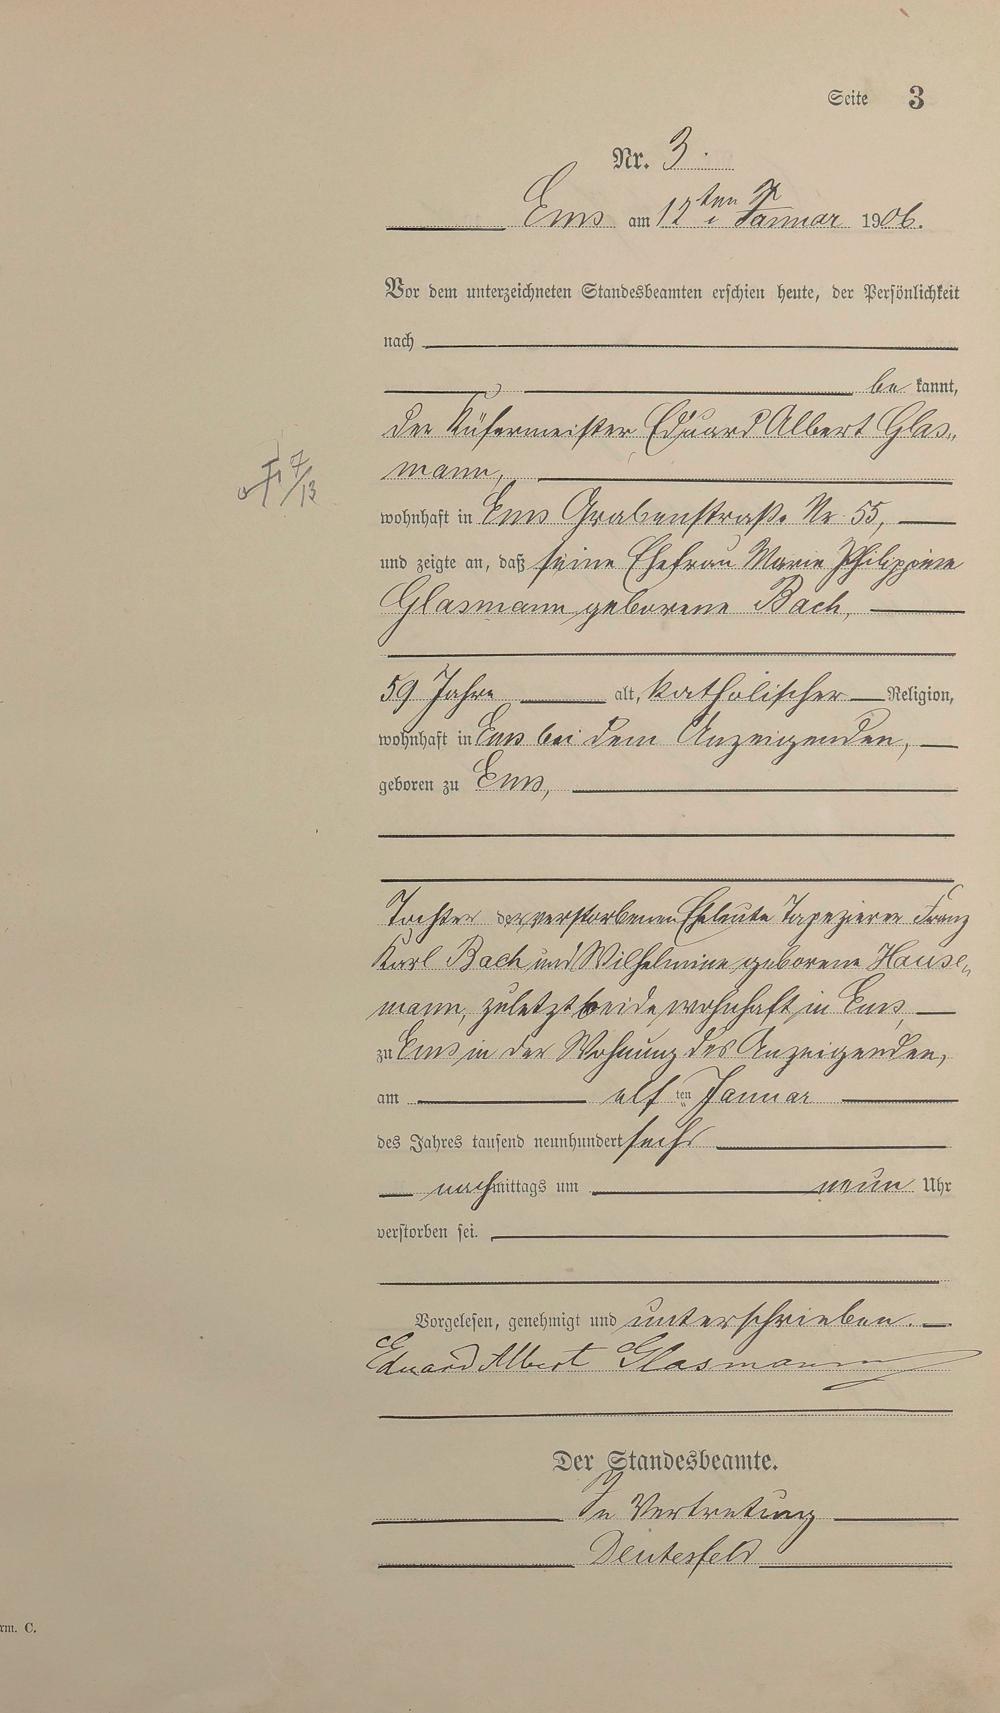 Seite 3
Nr. 3.
Ems am 12ten Januar 1906.
Vor dem unterzeichneten Standesbeamten erschien heute, der Persönlichkeit
nach
be kannt,
der Küfermeister Eduard Albert Glas„
mann,
wohnhaft in Ems Grabenstraße Nr. 55,
und zeigte an, daß seine Ehefrau Marie Philippine
Glasmann geborene Bach,
59 Jahre alt, katholischer Religion,
wohnhaft in Ems bei dem Anzeigenden,
geboren zu Ems,
Tochter der verstorbenen Eheleute Tapezierer Franz
Karl Bach und Wilhelmine geborene Hause„
mann, zuletzt beide wohnhaft in Ems,
zu Ems in der Wohnung des Anzeigenden,
am elf ten Januar
des Jahres tausend neunhundert sechs
nachmittags um neun Uhr
verstorben sei.
Vorgelesen, genehmigt und unterschrieben.
Eduard Albert Glasmann
Der Standesbeamte.
In Vertretung
Deutesfeld
rm. C.